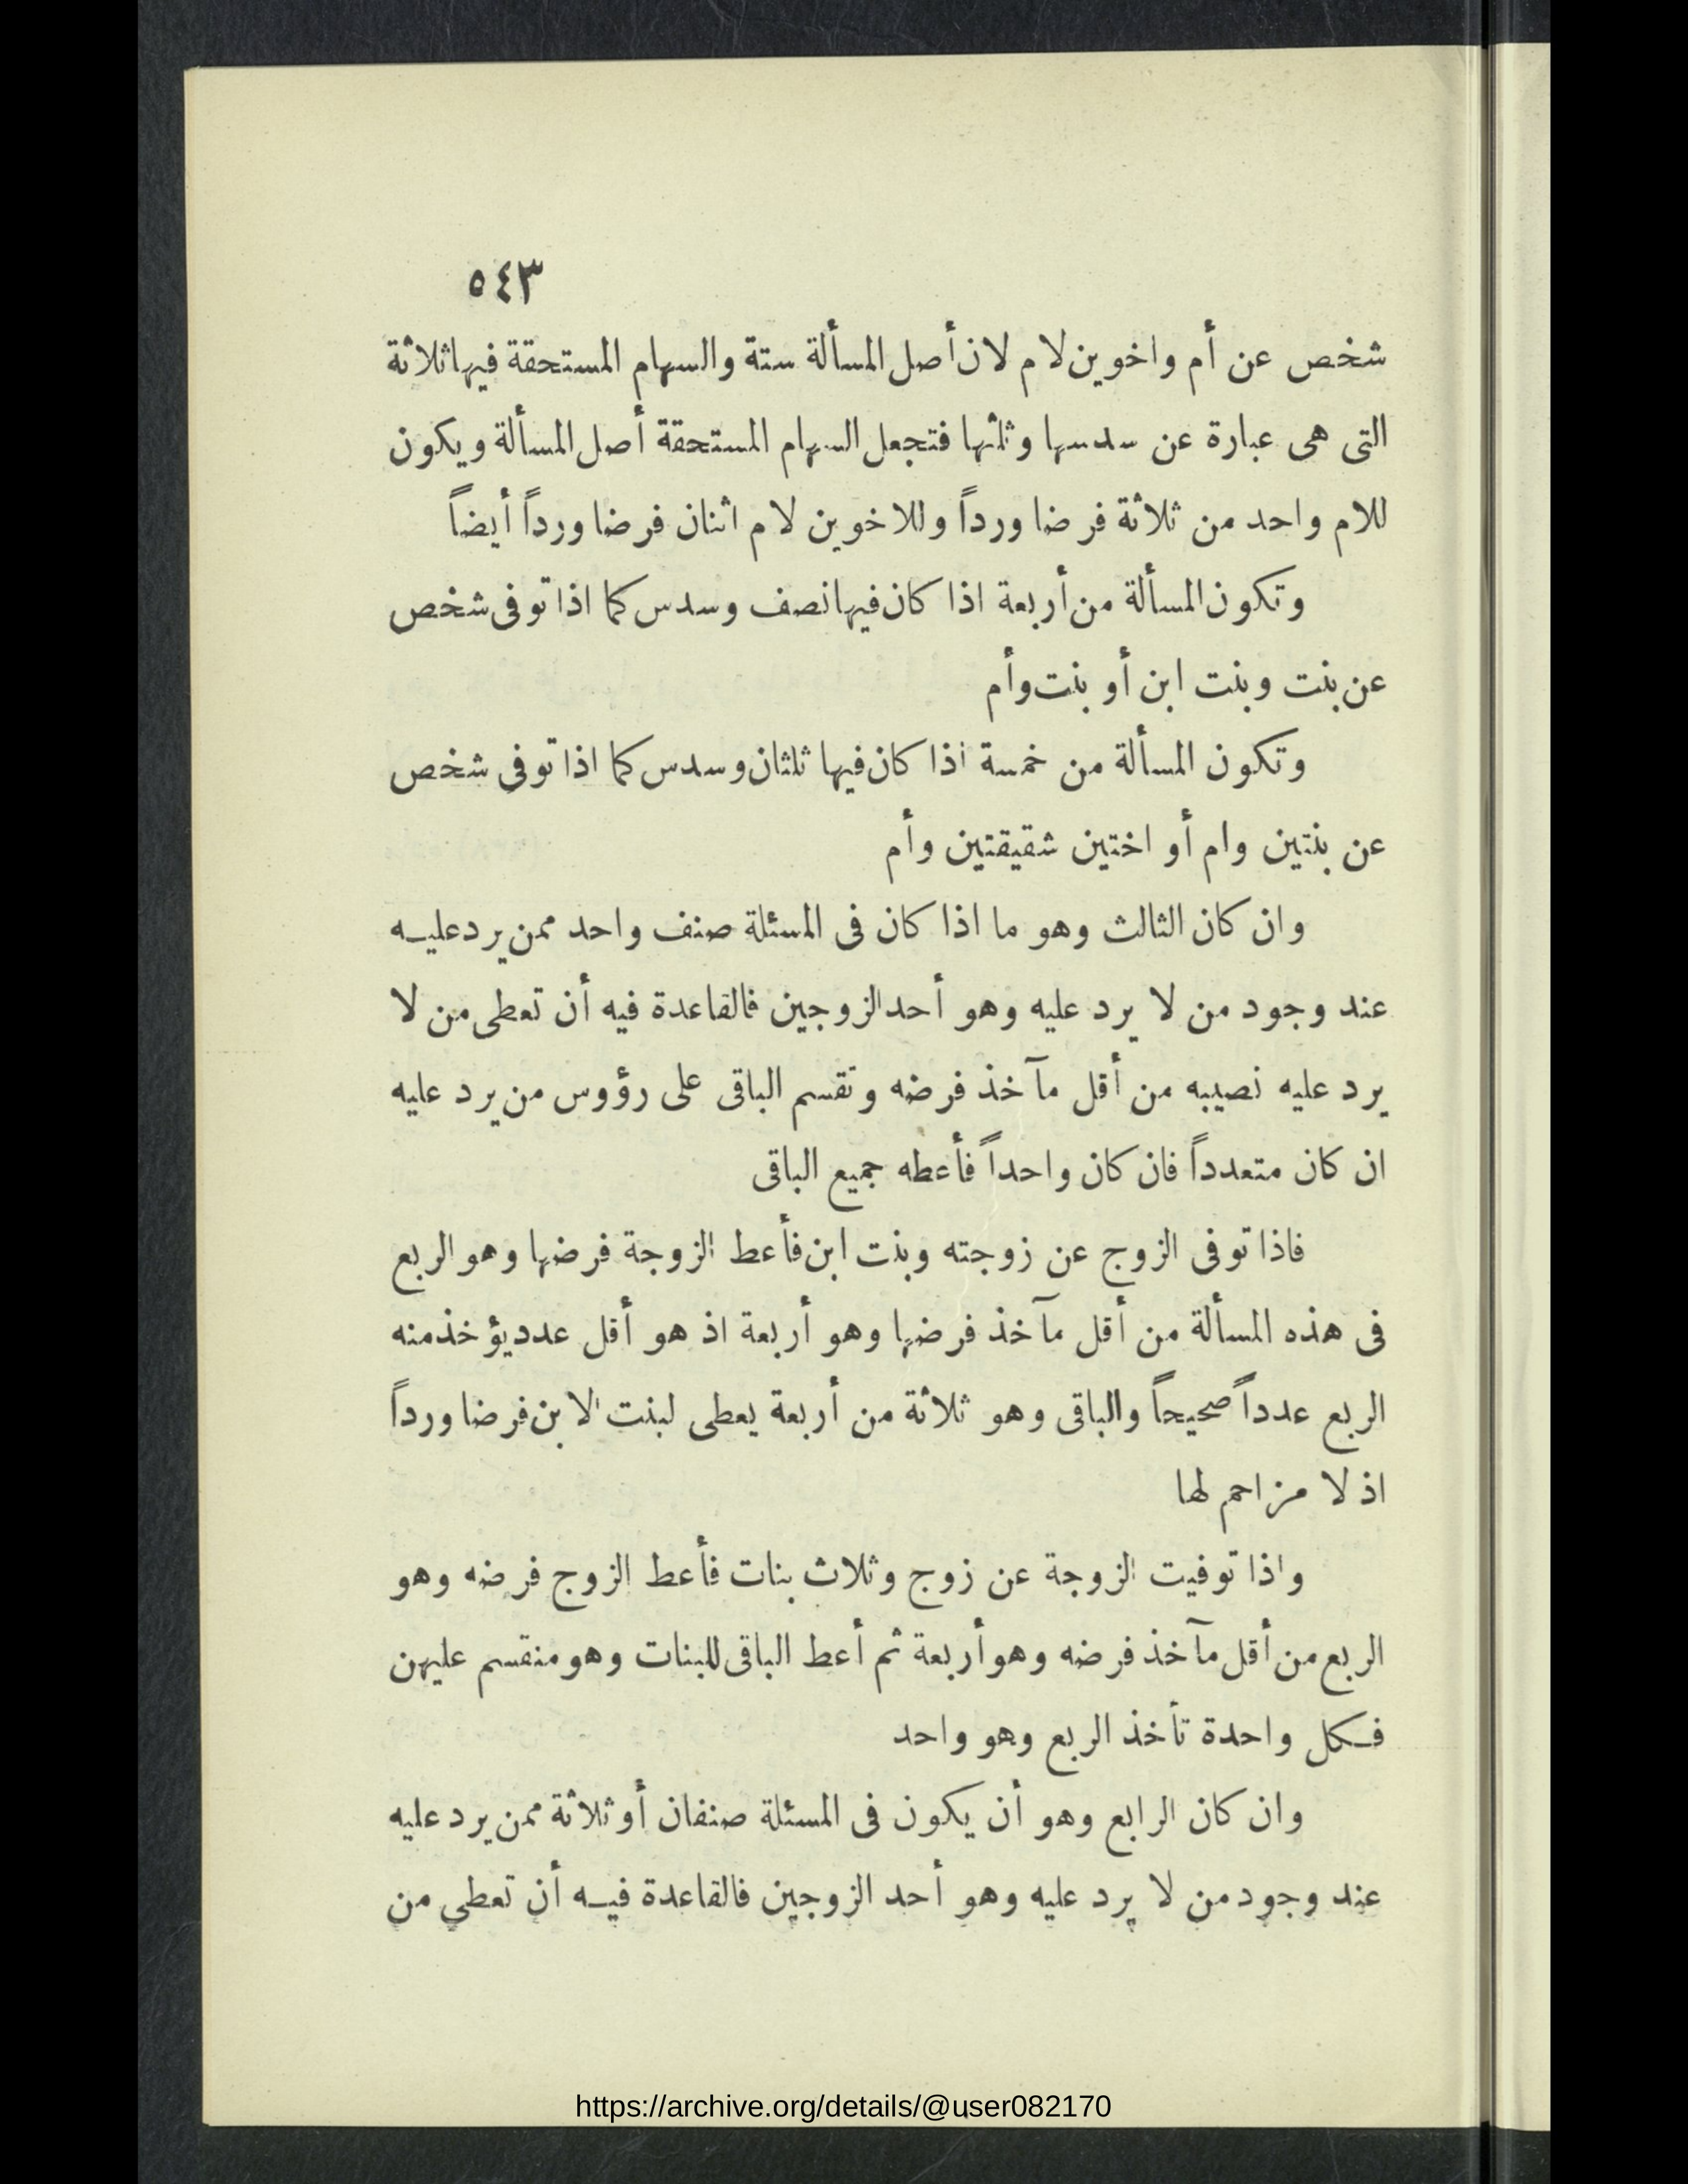 ٥٤٣
شخص عن أم واخوين لام لان أصل المسألة ستة والسهام المستحقة فيها ثلاثة
التى هى عبارة عن سدسها وثلثها فتجعل السهام المستحقة أصل المسألة ويكون
للام واحد من ثلاثة فرضا ورداً وللاخوين لام اثنان فرضا ورداً أيضاً
وتكون المسألة من أربعة اذا كان فيها نصف وسدس كما اذا توفى شخص
عن بنت وبنت ابن أو بنت وأم
وتكون المسألة من خمسة اذا كان فيها ثلثان وسدس كما اذا توفى شخص
عن بنتين وام أو اختين شقيقتين وأم
وان كان الثالث وهو ما اذا كان فى المسئلة صنف واحد ممن يرد عليه
عند وجود من لا يرد عليه وهو أحد الزوجين فالقاعدة فيه أن تعطى من لا
يرد عليه نصيبه من أقل مآخذ فرضه وتقسم الباقى على رؤوس من يرد عليه
ان كان متعدداً فان كان واحداً فأعطه جميع الباقى
فاذا توفى الزوج عن زوجته وبنت ابن فأعط الزوجة فرضها وهو الربع
فى هذه المسألة من أقل مآخذ فرضها وهو أربعة اذ هو أقل عدد يؤخذ منه
الربع عدداً صحيحاً والباقى وهو ثلاثة من أربعة يعطى لبنت الابن فرضا ورداً
اذ لا مزاحم لها
واذا توفيت الزوجة عن زوج وثلاث بنات فأعط الزوج فرضه وهو
الربع من أقل مآخذ فرضه وهو أربعة ثم أعط الباقى للبنات وهو منقسم عليهن
فكل واحدة تأخذ الربع وهو واحد
وان كان الرابع وهو أن يكون فى المسئلة صنفان أو ثلاثة ممن يرد عليه
عند وجود من لا يرد عليه وهو أحد الزوجين فالقاعدة فيه أن تعطى من
https://archive.org/details/@user082170